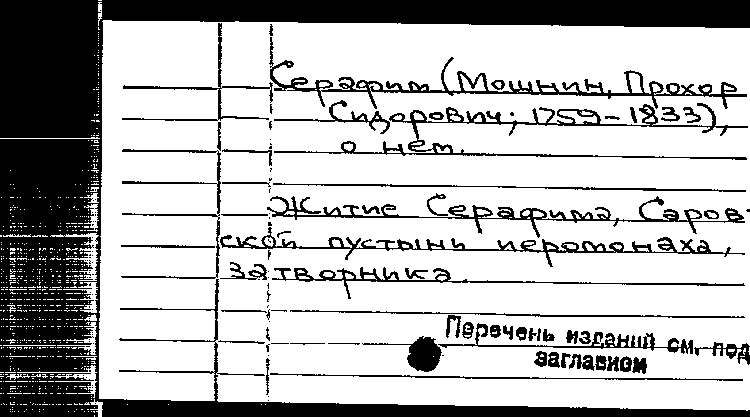 Серафим (Мошнин, Прохор
Сидорович; 1759-1833),
о нем.
Житие Серафима, Саров-
ской пустыни иеромонаха,
затворника.
Перечень изданий см. под
заглавием